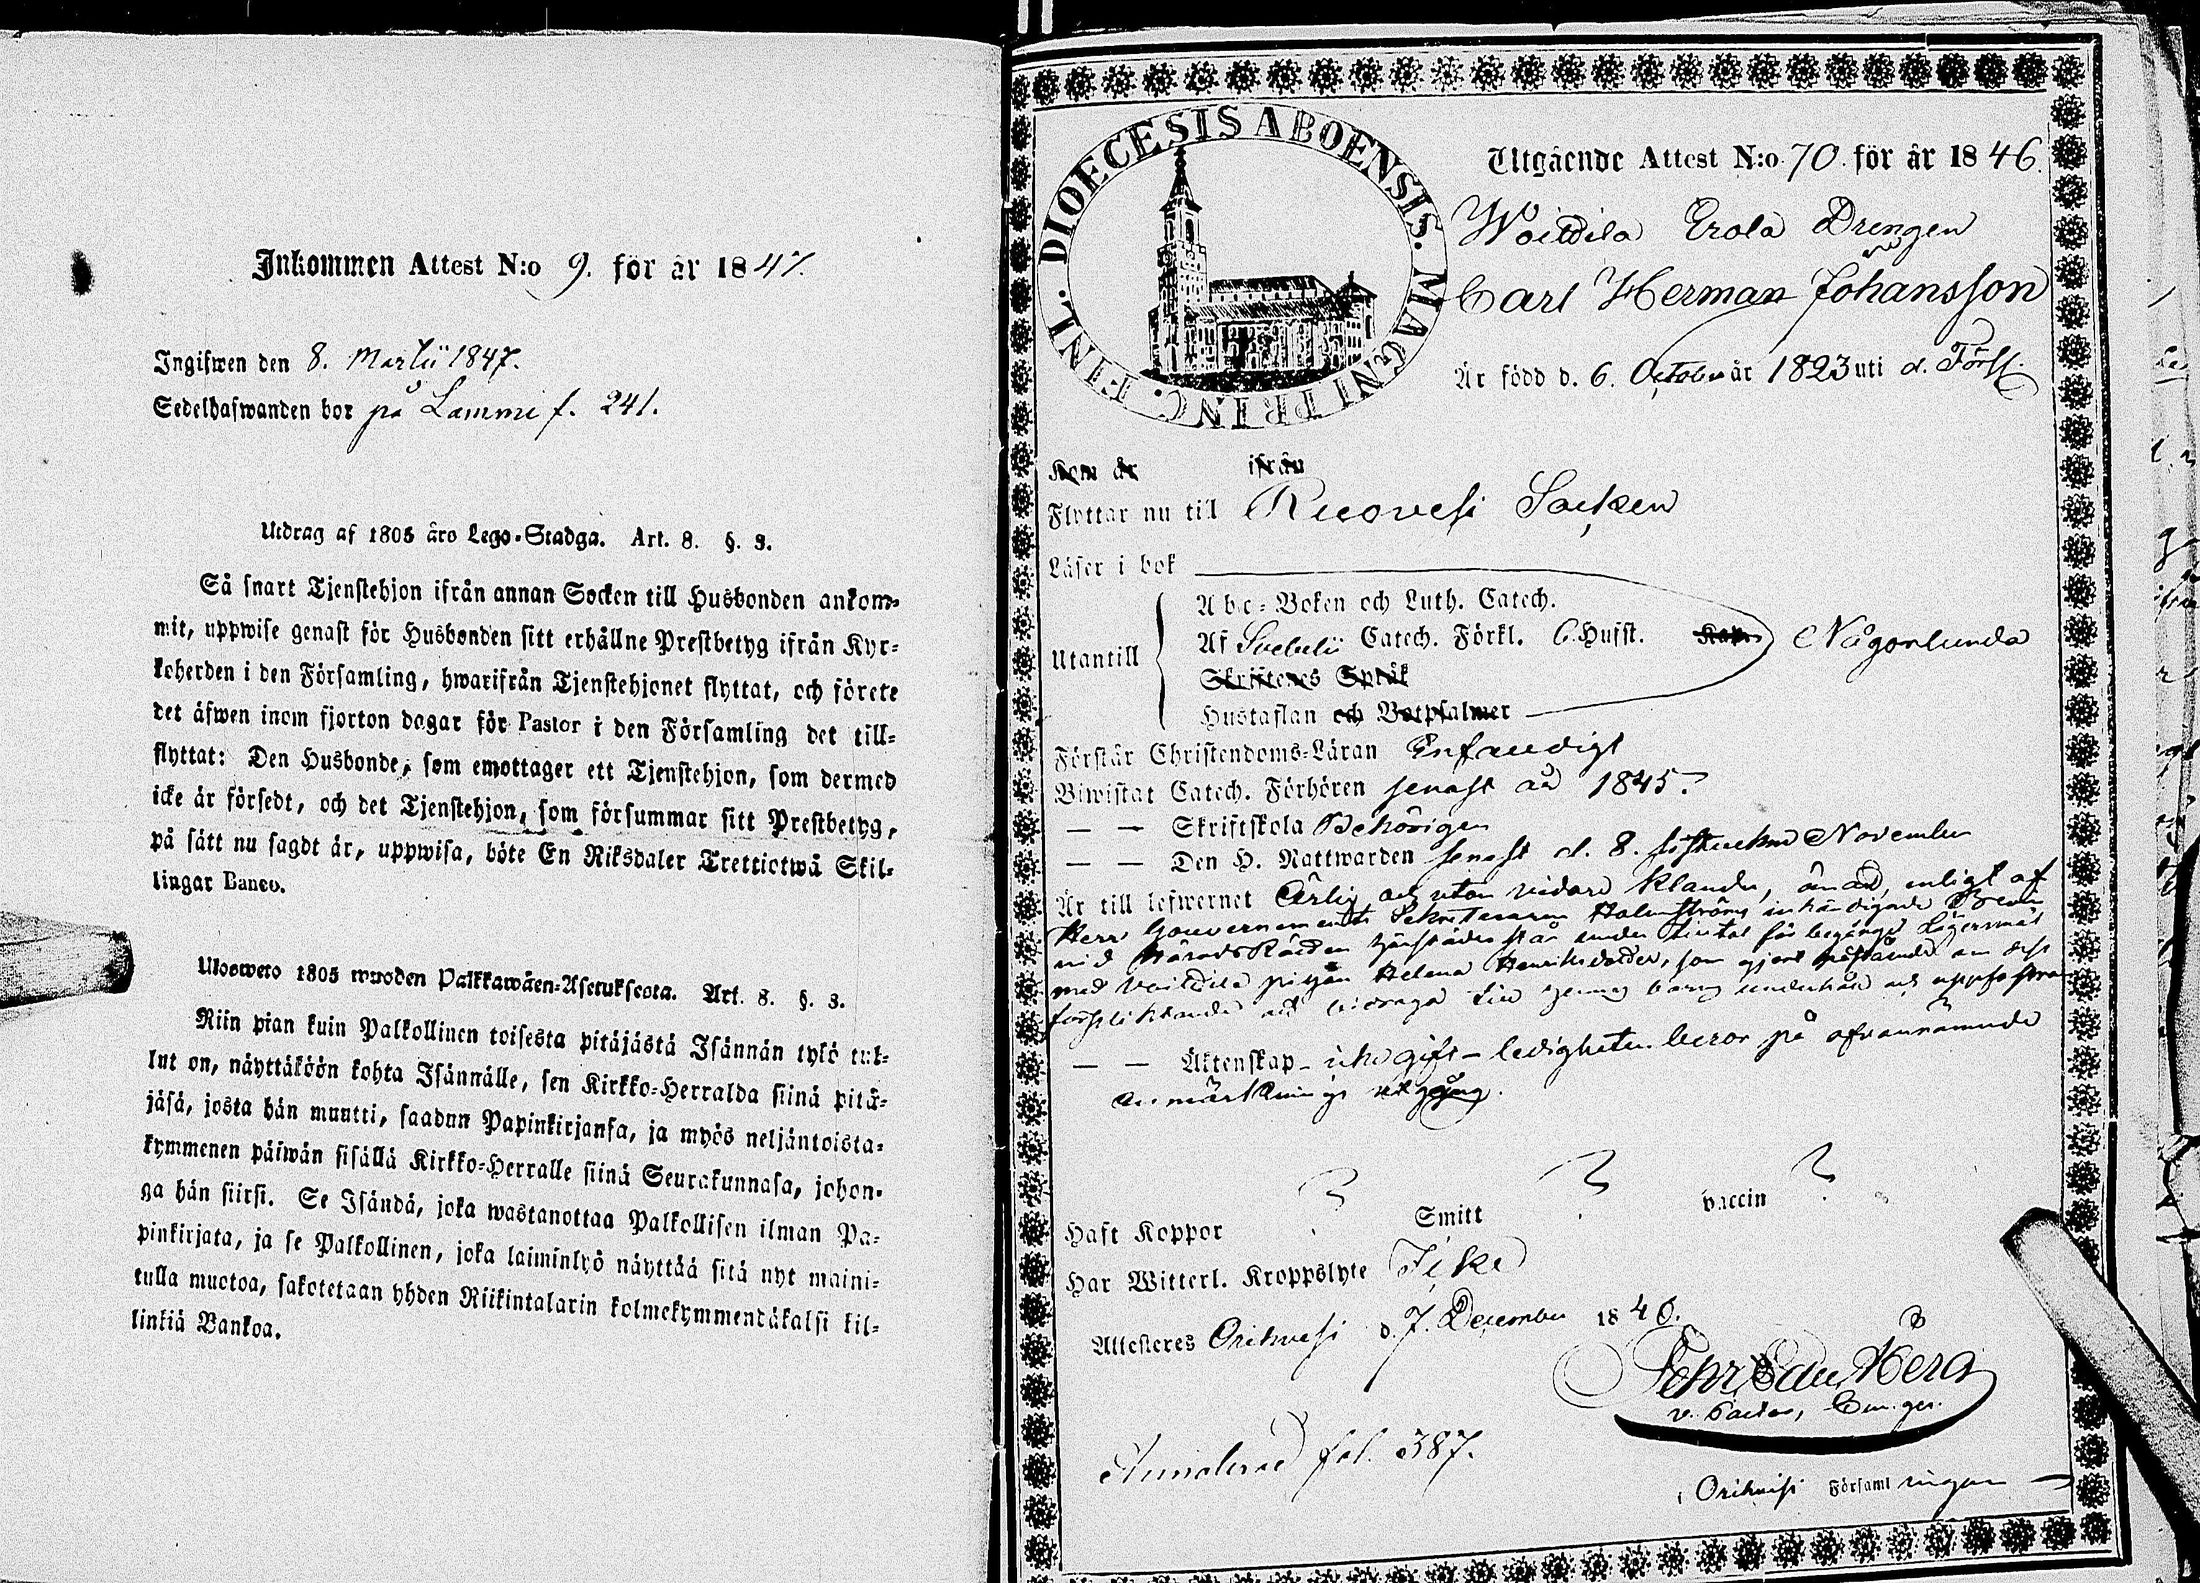 Inkommen Attest N:o 9. för år 1847.
Ingifwen den 8. Martii 1847.
Sedelhafwanden bor på Lammi f. 241.
Utdrag af 1805 års Lego-Stadga. Art. 8. §. 3.
Så snart Tjenstehjon ifrån annan Socken till Husbonden ankom-
mit, uppwise genast för Husbonden sitt erhållne Prestbetyg ifrån Kyr-
koherden i den Församling, hwarifrån Tjenstehjonet flyttat, och förete
det äfwen inom fjorton dagar för Pastor i den Församling det till-
flyttat: Den Husbonde, som emottager ett Tjenstehjon, som dermed
icke är försedt, och det Tjenstehjon, som försummar sitt Prestbetyg,
på sätt nu sagdt är, uppwisa, böte En Riksdaler Trettiotwå Skil-
lingar Banco.
Ulosweto 1805 wuoden Palkkawäen-Asetuksesta. Art. 8. §. 3.
Niin pian kuin Palkollinen toisesta pitäjästä Isännän tykö tul-
lut on, näyttäköön kohta Isännälle, sen Kirkko-Herralda siinä pitä-
jäsä, josta hän muutti, saadun Papinkirjansa, ja myös neljäntoista-
kymmenen päiwän sisällä Kirkko-Herralle siinä Seurakunnasa, johon-
ga hän siirsi. Se Isändä, joka wastanottaa Palkollisen ilman Pa-
pinkirjata, ja se Palkollinen, joka laiminlyö näyttää sitä nyt maini-
tulla muotoa, sakotetaan yhden Riikintalarin kolmekymmendäkaksi kil-
linkiä Bankoa.
DIOECESIS ABOENSIS. MAGNI PRINC. FINL.
Utgående Attest N:o 70. för år 1846.
Woitila Erola Drengen
Carl Herman Johansson
Är född d. 6. October år 1823 uti d. Förs.
Kom år ifrån
Flyttar nu till Ruovesi Socken
Läser i bok
Abc-Boken och Luth. Catech.
Utantill Af Svebelii Catech. Förkl. C. Hufst. Någorlunda
Skriftenes Språk
Hustaflan och Botpsalmer
Förstår Christendoms-Läran Enfaldigt
Biwistat Catech. Förhören senast år 1845.
— — Skriftskola Behörigen
— — Den H. Nattwarden senast d. 8. sistlidne November
Är till lefwernet Ärlig och utan vidare klander, än att, enligt af
Herr Gouvernements Sekreteraren Holmströms inhändigade
vid Härads Rätten under tiltal för begånget Lägersmål
med Woitila pigan Helena Henriksdotter, som gjort påstående om dess
förpliktande att bidraga till barns underhåll och uppfostran
— — Äktenskap - icke gift - ledigheten beror på ofvannämnde
anmärknings utgång.
Haft Koppor ? Smitt ? vaccin ?
Har Witterl. Kroppslyte Icke
Attesteres Orihvesi d. 7. December 1846.
v. Pastor,
fol. 387.
i Orihvesi Församlingen